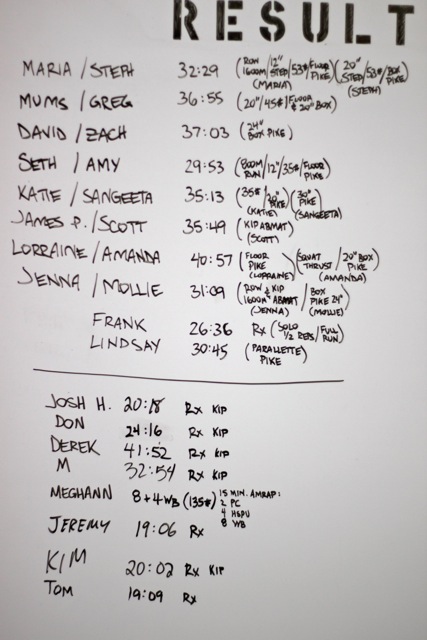 RESULT
MARIA/STEPH 32:29 (ROW 1600M/12" STEP/53#/FLOOR PIKE) (MARIA) (20" STEP/53#/BOX PIKE) (STEPH)
MUMS/GREG 36:55 (20"/45#/FLOOR & 20" BOX)
DAVID/ZACH 37:03 (24" BOX PIKE)
SETH/AMY 29:53 (800M RUN/12"/35#/FLOOR PIKE)
KATIE/SANGEETA 35:13 (35#/20" PIKE) (KATIE) (30" PIKE) (SANGEETA)
JAMES P./SCOTT 35:49 (KIP ABMAT) (SCOTT)
LORRAINE/AMANDA 40:57 (FLOOR PIKE) (LORRAINE) (SQUAT THRUST/20" BOX PIKE) (AMANDA)
JENNA/MOLLIE 31:09 (ROW 1600M & KIP ABMAT (JENNA) / BOX PIKE 24" (MOLLIE))
FRANK 26:36 Rx (SOLO 1/2 REPS/FULL RUN)
LINDSAY 30:45 (PARALLETTE PIKE)
JOSH H. 20:18 Rx KIP
DON 24:16 Rx KIP
DEREK 41:52 Rx KIP
M 32:54 Rx KIP
MEGHANN 8+4WB (135#) 15 MIN. AMRAP:
2 PC
4 HSPU
8 WB
JEREMY 19:06 Rx
KIM 20:02 Rx KIP
TOM 19:09 Rx